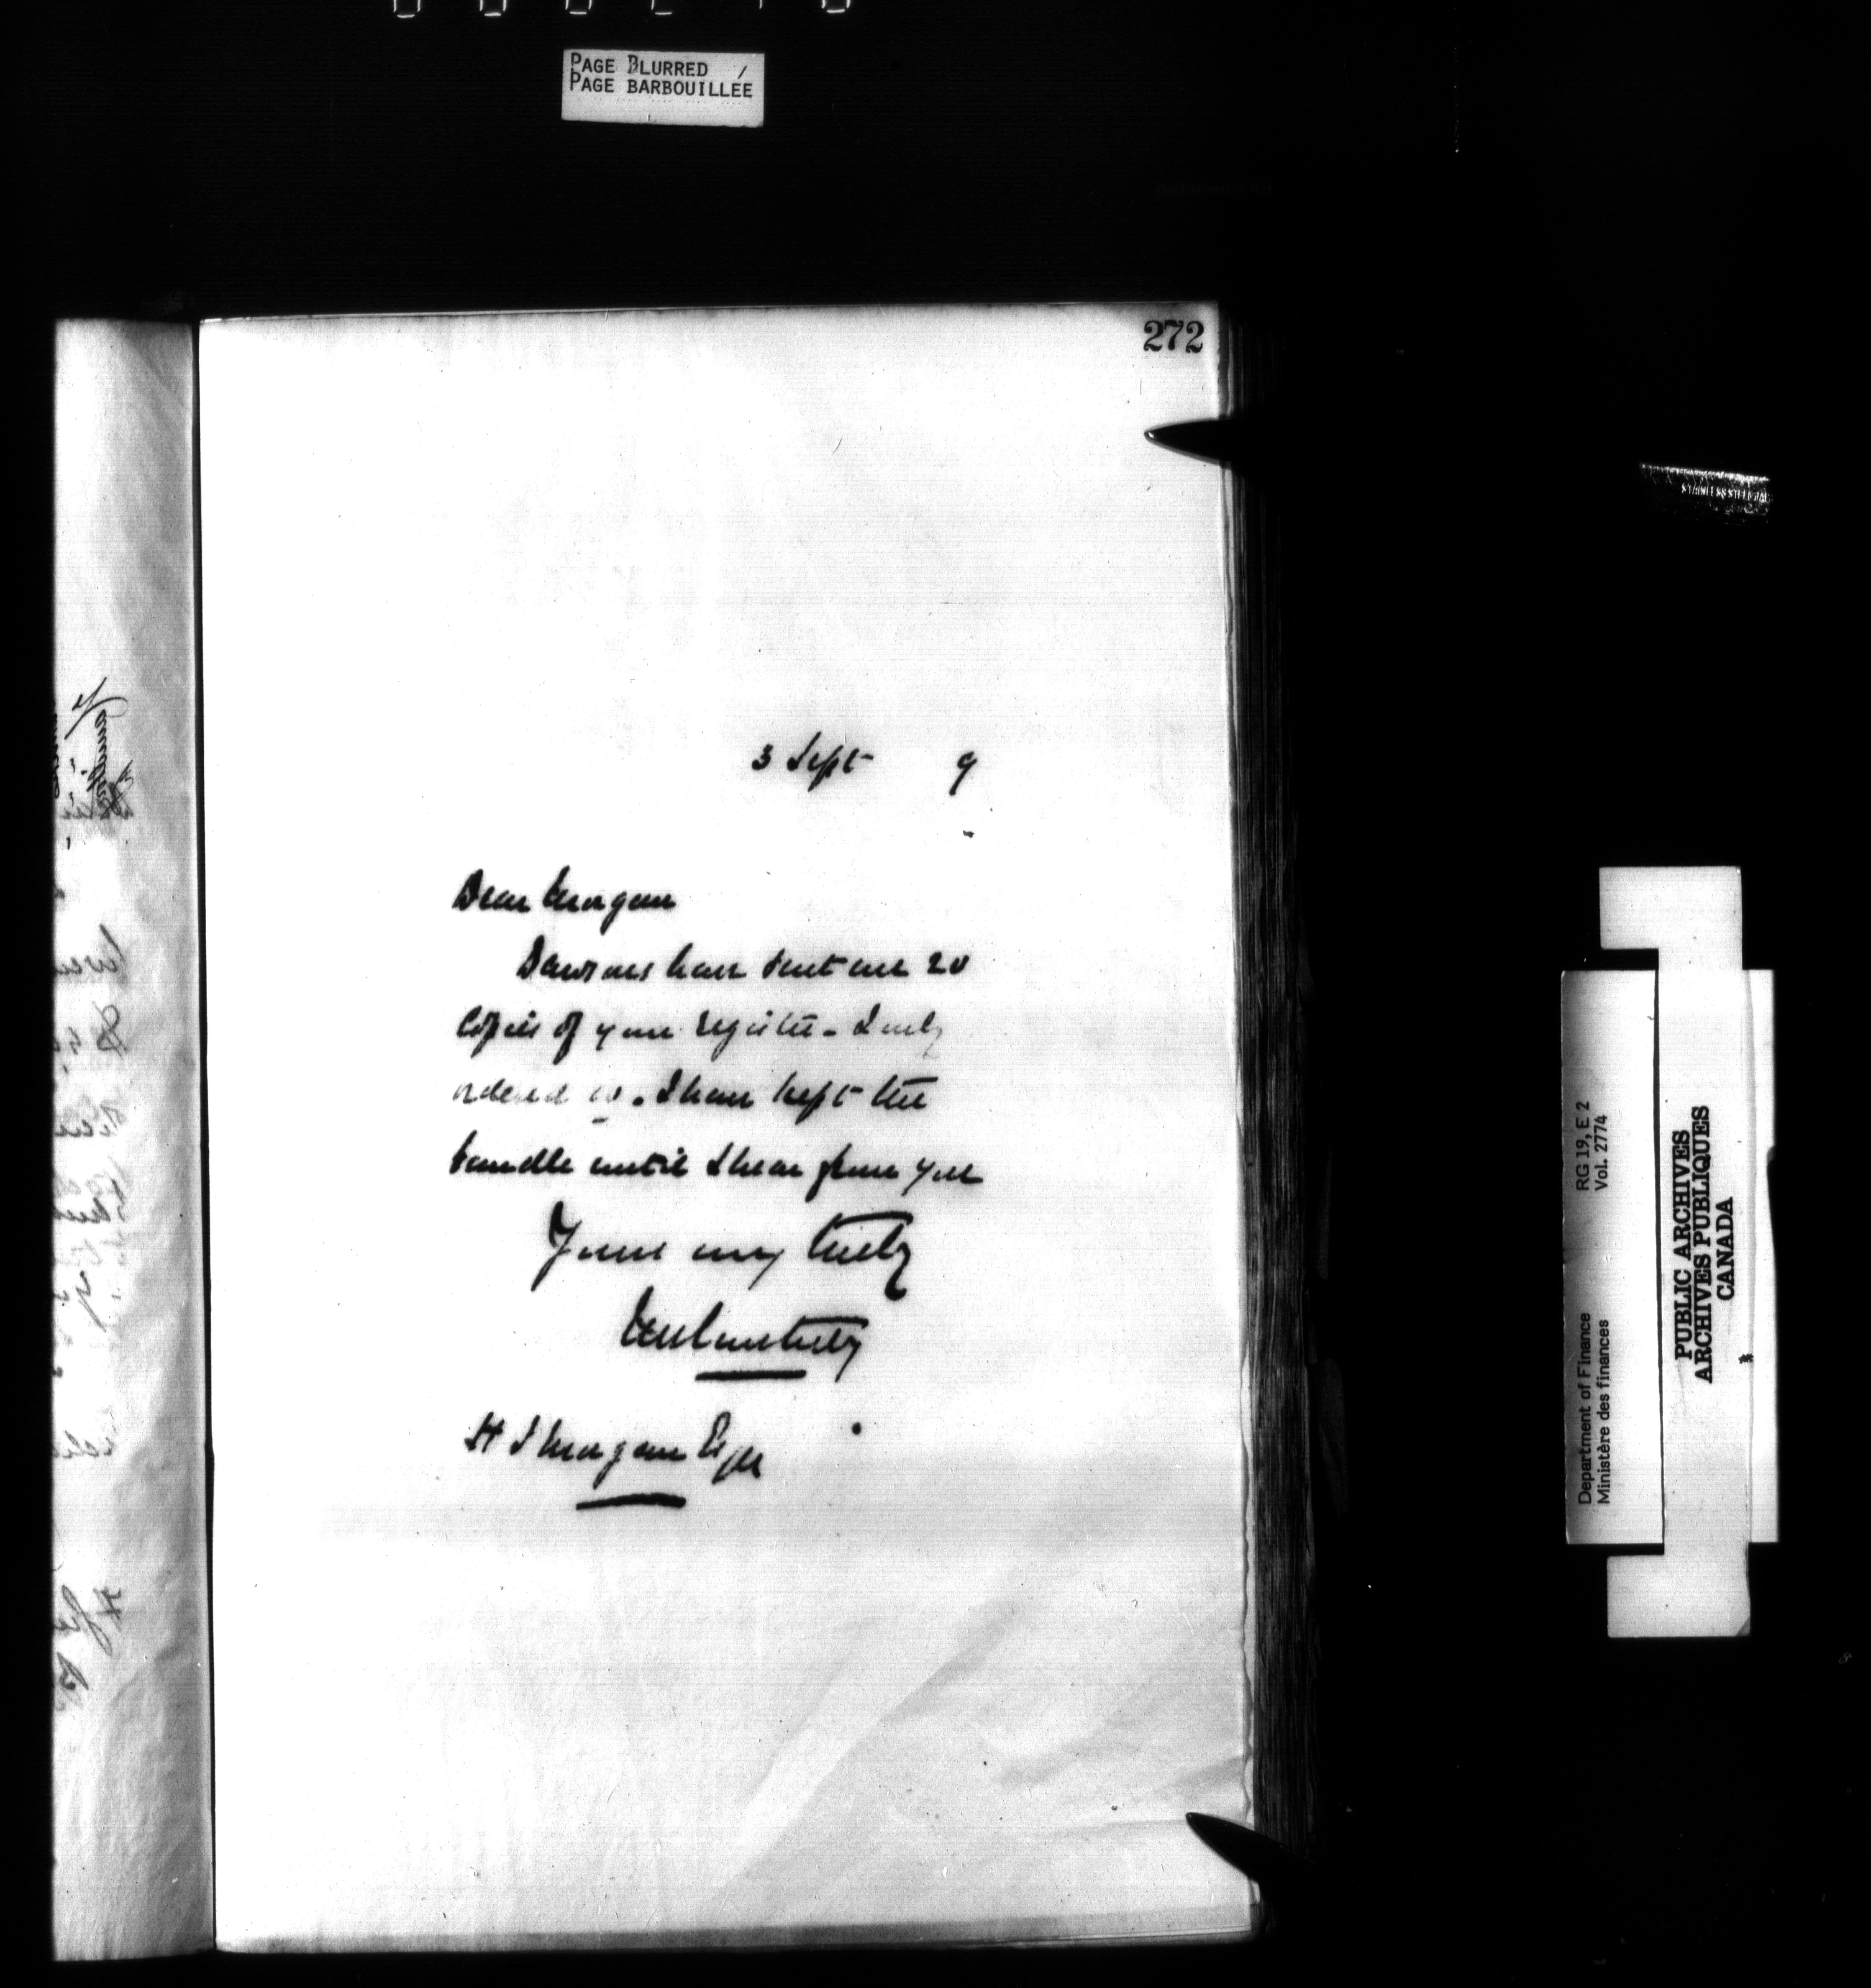 PAGE BLURRED /
PAGE BARBOUILLÉE
272
3 Sept 9
Dear Morgan
Dawsons have sent me 20
Copies of your register - I only
ordered 10. I have kept the
bundle until I hear from you
Yours very truly
JM Courtney
H J Morgan Esqre
Department of Finance RG 19, E 2
Ministère des finances Vol. 2774
PUBLIC ARCHIVES
ARCHIVES PUBLIQUES
CANADA